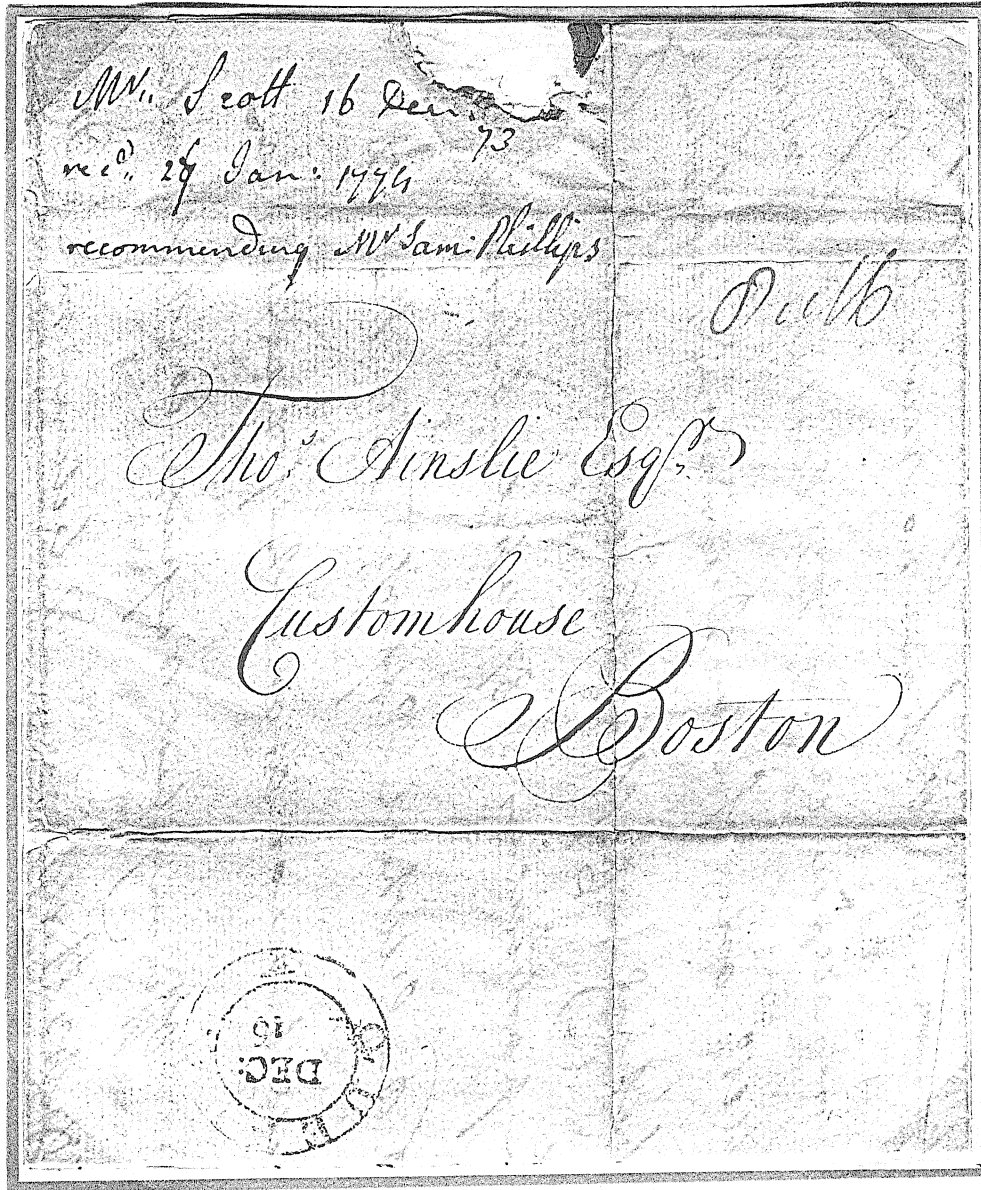 Mr. Scott 16 Decr. 73
recd. 24 Jan: 1774
recommending Mr Sam: Phillips
Thos. Ainslie Esqr.
Customhouse
Boston
QUE
DEC:
16